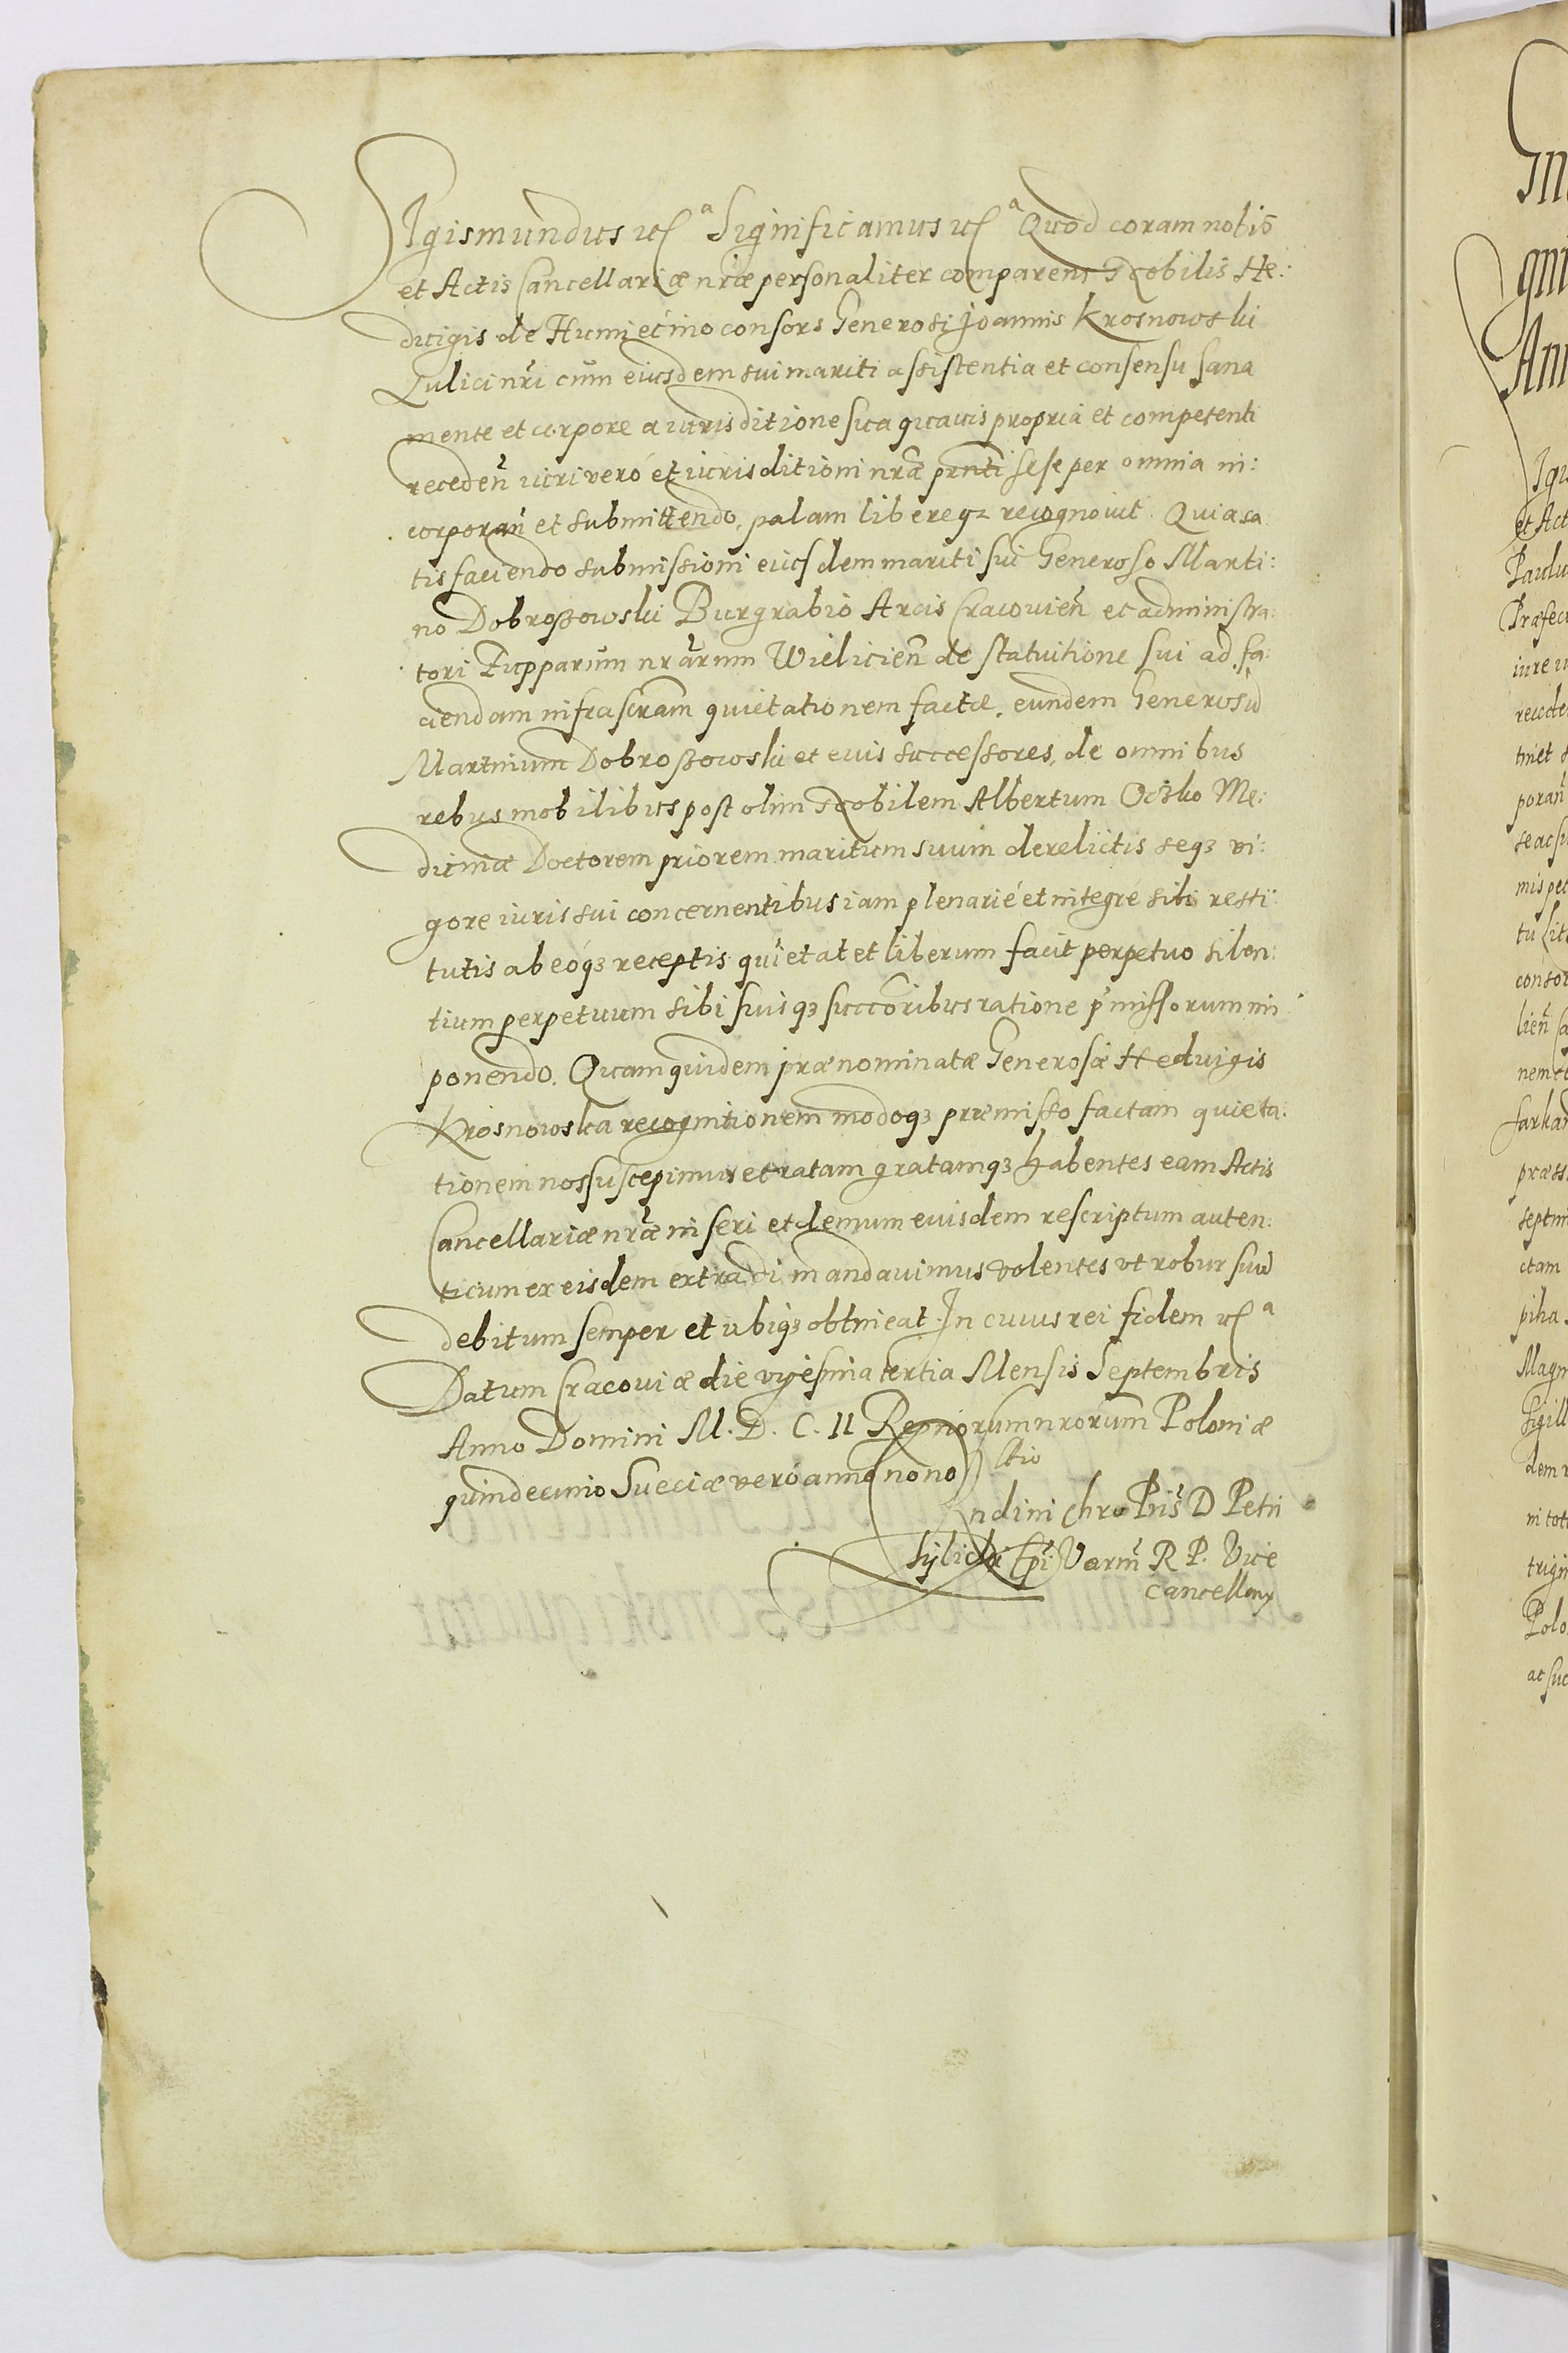 SIgismundus etc̃ª Significamus etc̃ª Quod coram nobis
et Actis Cancellariæ nr̃æ personaliter comparens Nobilis He:
duigis de Humięcino consors Generosi Joannis Krosnowski
Aulici nr̃i cum eiusdem sui mariti assistentia et consensu sana
mente et corpore a iurisditione sua quauis propria et competenti
receden̄ iuri vero et iurisditioni nr̃æ prnti sese per omnia in:
corporan̄ et submittendo, palam libereqz recognouit. Quia sa
tisfaciendo submissioni eiusdem mariti sui Generoso Marti:
no Dobroszowski Burgrabio Arcis Cracouien̄ et administra:
tori Zupparum nrarum Wielicien̄ de statuitione sui ad fa:
ciendam infrascr̃am quietationem factæ, eundem Generosũ
Martinum Dobroszowski et euis successores, de omnibus
rebus mobilibus post olim Nobilem Albertum Oczko Me:
dicinæ Doctorem priorem maritum suum derelictis seqz vi:
gore iuris sui concernentibus iam plenariè et integrè sibi resti:
tutis ab eóqz receptis quietat et liberum facit perpetuo silen:
tium perpetuum sibi suisqz succ̃oribus ratione p̃missorum im
ponendo. Quam quidem prænominatæ Generosæ Heduigis
Krosnowska recognitionem modoqz præmisso factam quieta:
tionem nos suscepimus et ratam gratamqz habentes eam Actis
Cancellariæ nr̃æ inseri et demum euisdem rescriptum auten:
ticum ex eisdem extradi mandauimus volentes vt robur suũ
debitum semper et ubiqz obtineat. In cuius rei fidem etc̃ª
Datum Cracouiæ die vigesima tertia Mensis Septembris
Anno Domini M. D. C. II Regnorum nrorum Poloniæ
quindecimo Sueciæ veró anno nono Rtio
Rndini Chro Pris D Petri
Tylicki Epi: Varm̄ R P. Vice
Cancellarij